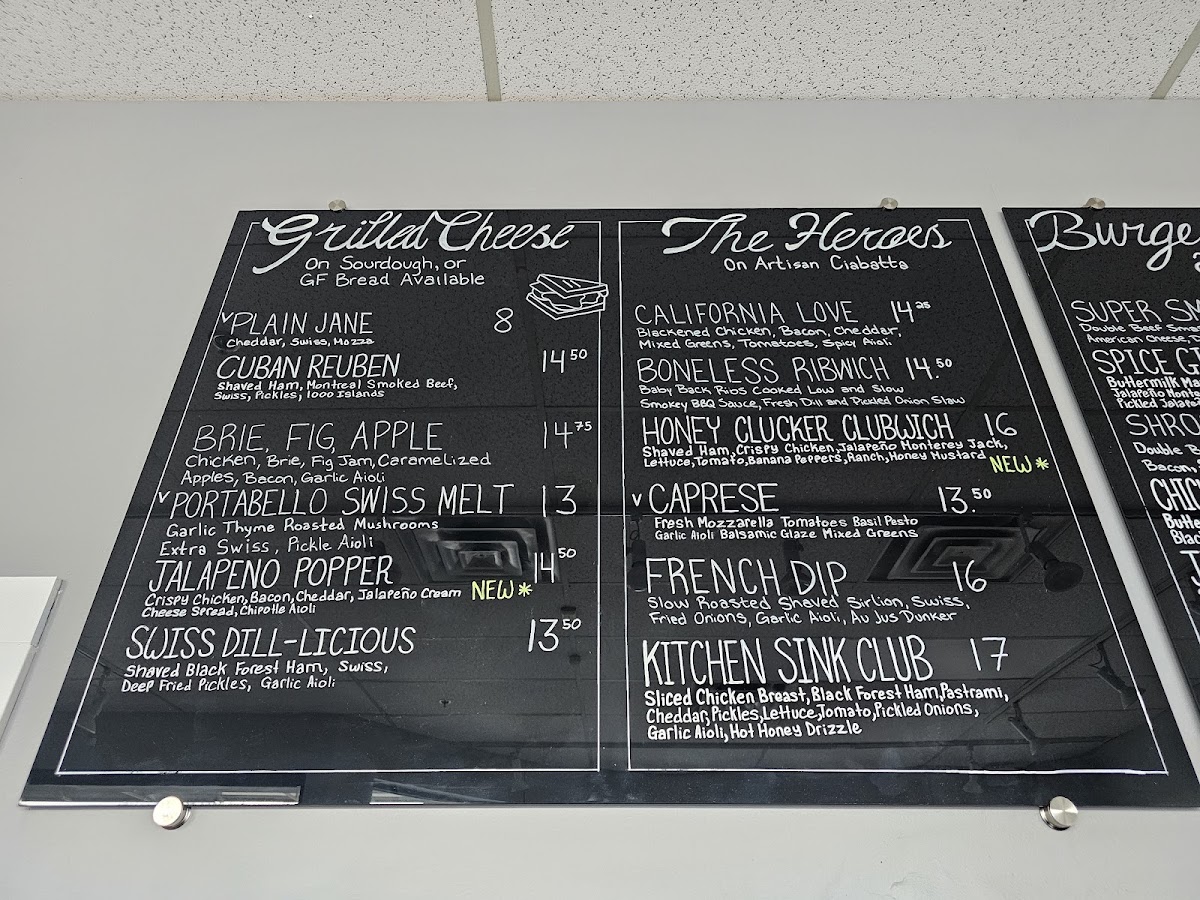 Grilled Cheese
On Sourdough, or
GF Bread Available
V PLAIN JANE 8
Cheddar, Swiss, Mozza
CUBAN REUBEN 14 50
Shaved Ham, Montreal Smoked Beef,
Swiss, Pickles, 1000 Islands
BRIE, FIG, APPLE 14 75
Chicken, Brie, Fig Jam, Caramelized
Apples, Bacon, Garlic Aioli
V PORTABELLO SWISS MELT 13
Garlic Thyme Roasted Mushrooms
Extra Swiss, Pickle Aioli
JALAPENO POPPER 14 50
Crispy Chicken, Bacon, Cheddar, Jalapeño Cream NEW *
Cheese Spread, Chipotle Aioli
SWISS DILL-LICIOUS 13 50
Shaved Black Forest Ham, Swiss,
Deep Fried Pickles, Garlic Aioli
The Heroes
On Artisan Ciabatta
CALIFORNIA LOVE 14 25
Blackened Chicken, Bacon, Cheddar,
Mixed Greens, Tomatoes, Spicy Aioli
BONELESS RIBWICH 14.50
Baby Back Ribs Cooked Low and Slow
Smokey BBQ Sauce, Fresh Dill and Pickled Onion Slaw
HONEY CLUCKER CLUBWICH 16
Shaved Ham, Crispy Chicken, Jalapeño Monterey Jack,
Lettuce, Tomato, Banana Peppers, Ranch, Honey Mustard NEW *
V CAPRESE 13.50
Fresh Mozzarella Tomatoes Basil Pesto
Garlic Aioli Balsamic Glaze Mixed Greens
FRENCH DIP 16
Slow Roasted Shaved Sirlion, Swiss,
Fried Onions, Garlic Aioli, Au Jus Dunker
KITCHEN SINK CLUB 17
Sliced Chicken Breast, Black Forest Ham, Pastrami,
Cheddar, Pickles, Lettuce, Tomato, Pickled Onions,
Garlic Aioli, Hot Honey Drizzle
Burge
SUPER SM
Double Beef Sma
American Cheese, D
SPICE G
Buttermilk Ma
Jalapeño Monte
Pickled Jalape
SHRO
Double B
Bacon,
CHIC
Butte
Black